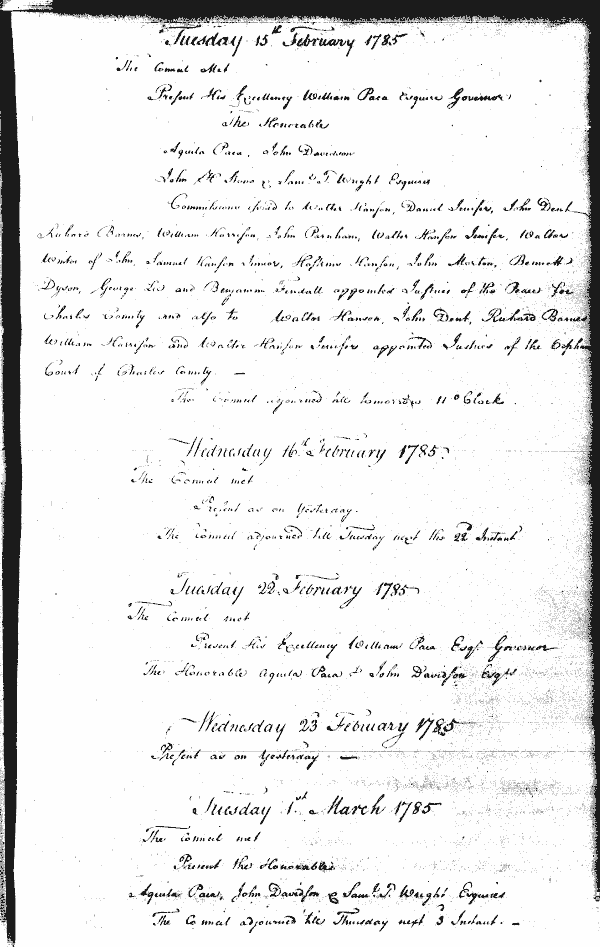 Tuesday 15th February 1785
The Council Met
Present His Excellency William Paca Esquire Governor
The Honorable
Aquila Paca, John Davidson
John H Stone & Saml T. Wright Esquires
Commissions issued to Walter Hanson, Daniel Jenifer, John Dent
Richard Barnes, William Harrison, John Parnham, Walter Hanson Jenifer, Walter
Winter of John, Samuel Hanson Junior, Hoskins Hanson, John Morton, Bennett
Dyson, George Lee and Benjamin Fendall appointed Justices of the Peace for
Charles County and also to Walter Hanson, John Dent, Richard Barnes
William Harrison and Walter Hanson Jenifer appointed Justices of the Orphans
Court of Charles County. —
The Council adjourned till tomorrow 11 oClock.
Wednesday 16th February 1785.
The Council met
Present as on Yesterday.
The Council adjourned till Tuesday next the 22d Instant
Tuesday 22d February 1785
The Council met
Present His Excellency William Paca Esqr. Governor
The Honorable Aquila Paca & John Davidson Esqrs
Wednesday 23d February 1785
Present as on Yesterday —
Tuesday 1st March 1785
The Council met
Present the Honorable
Aquila Paca, John Davidson & Saml. T. Wright Esquires
The Council adjourned till Thursday next 3 Instant. —